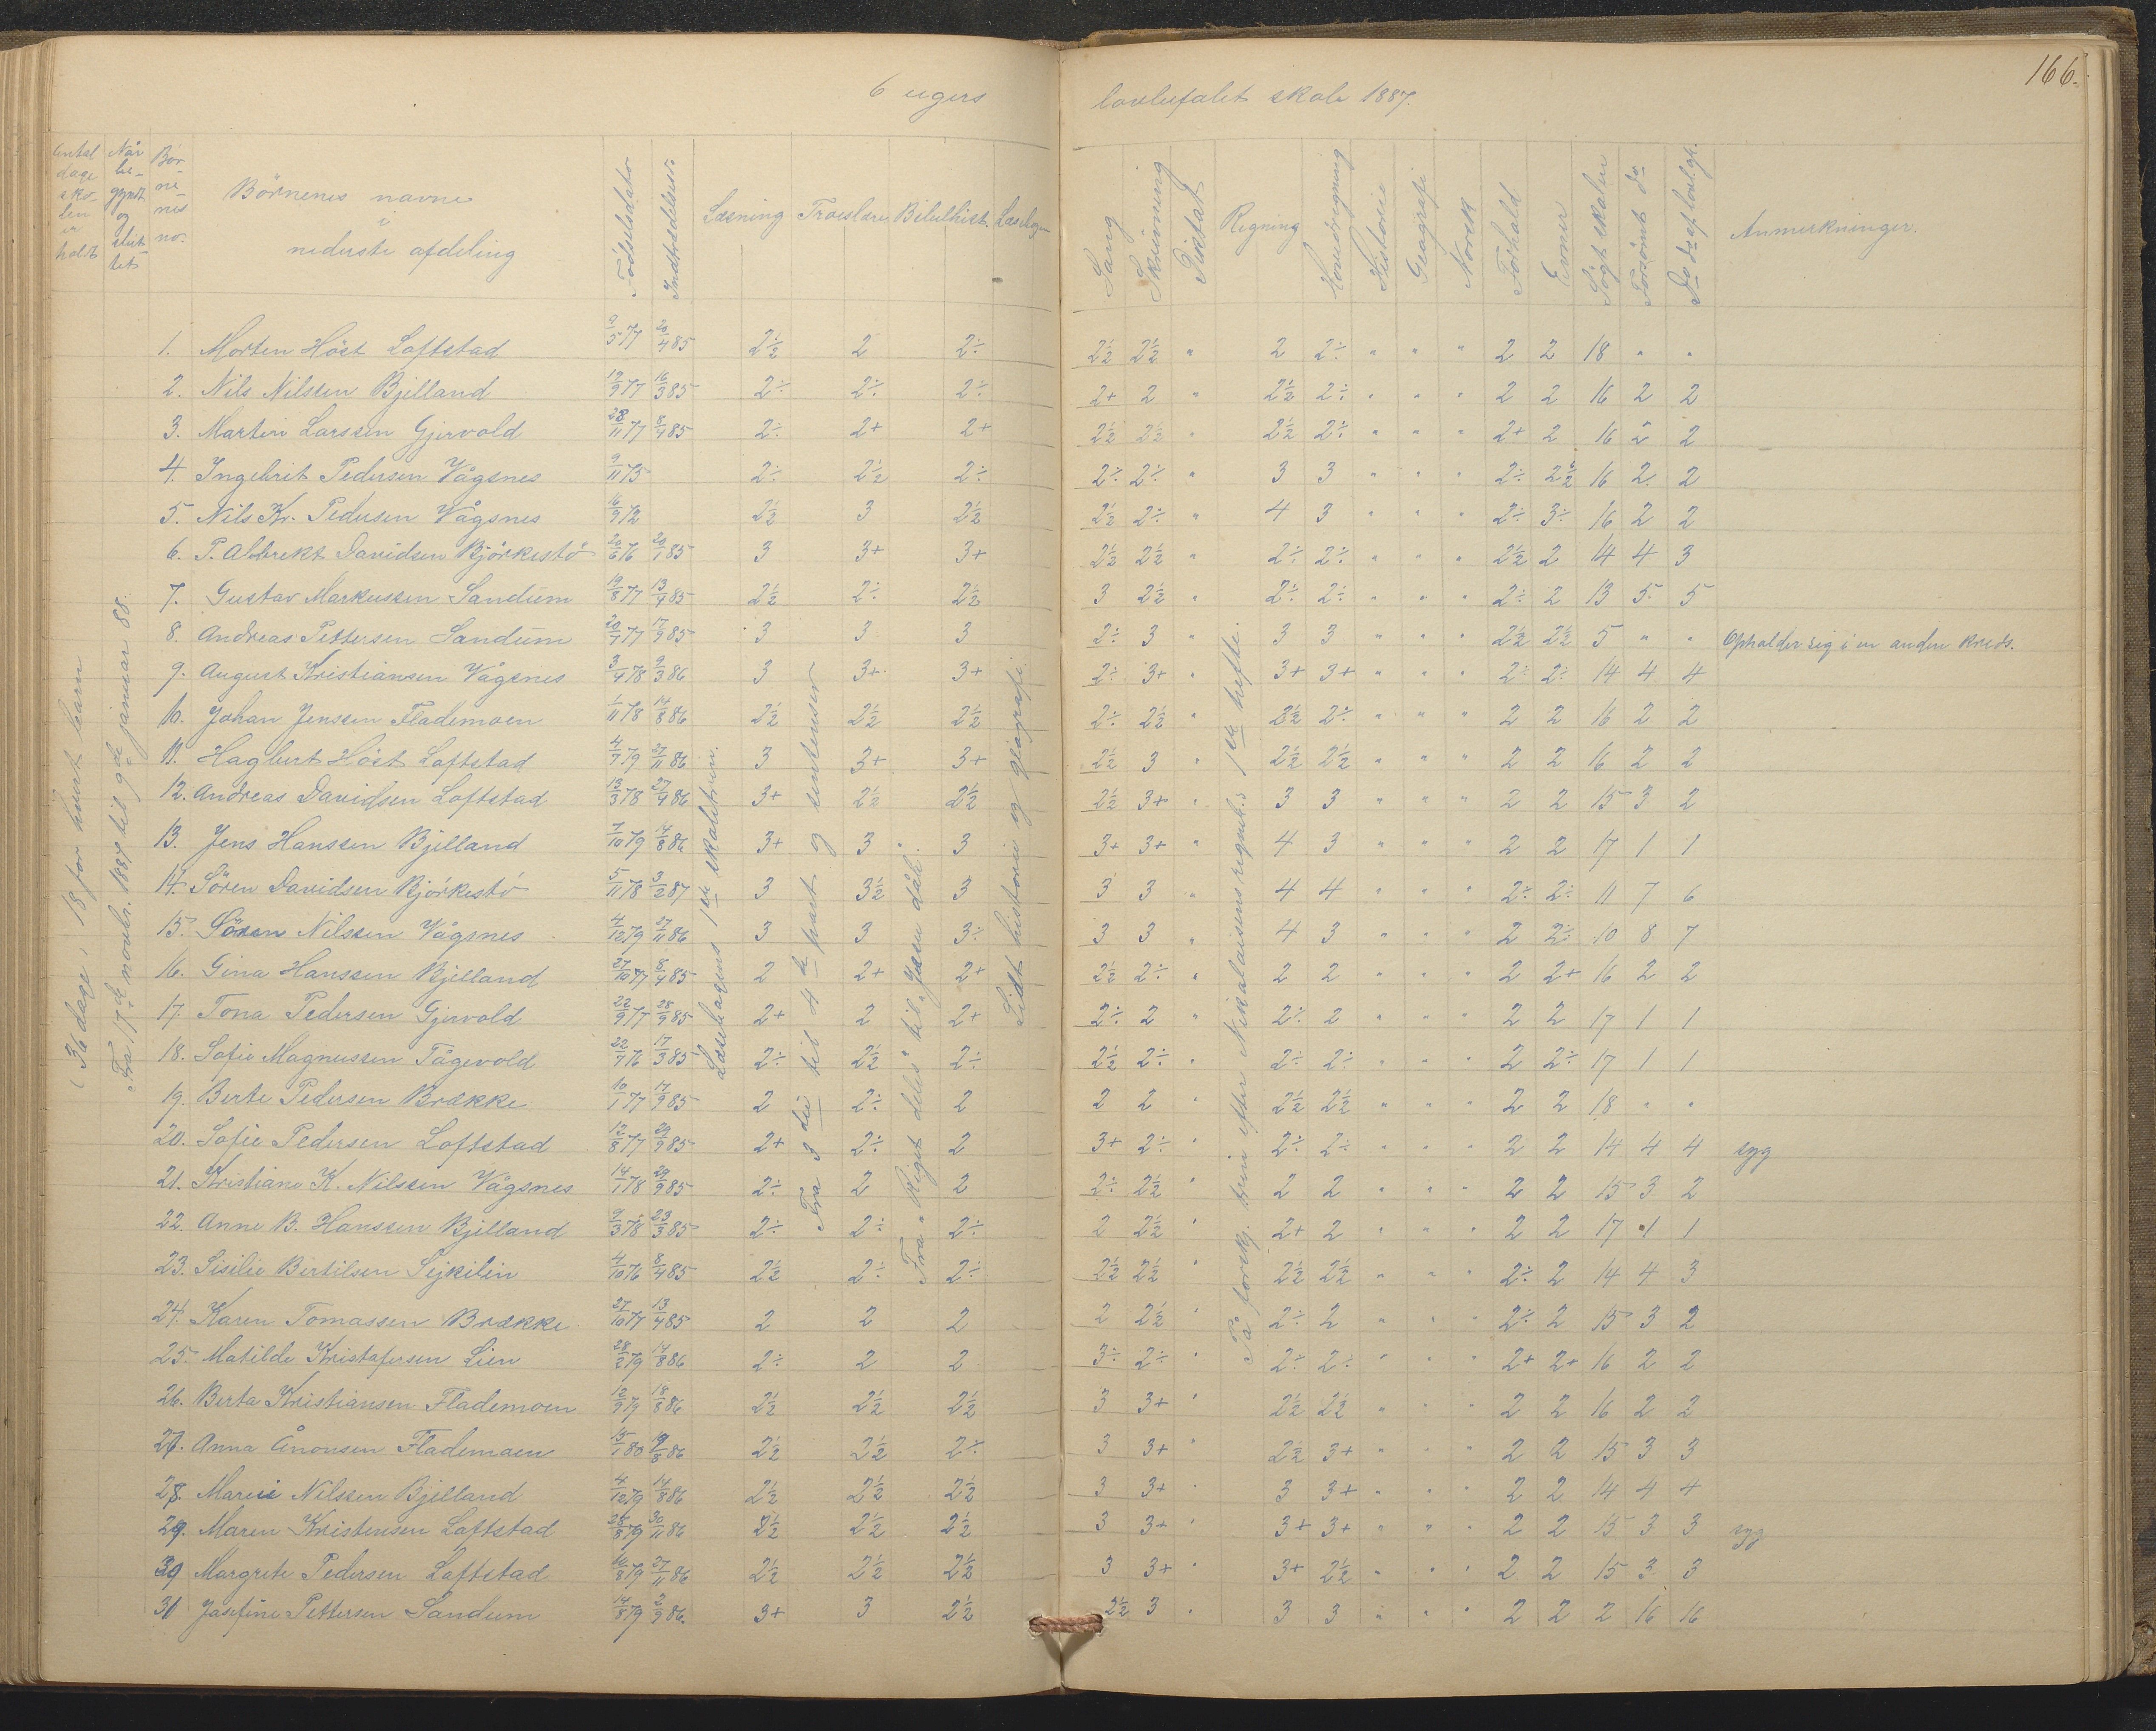 166.
6 ugers lovbefalet skole 1887.
Antal dage skolen er holdt
Når begyndt og sluttet
Börnenes no.
Börnenes navne i nederste afdeling
Födselsdato
Indtrædelses
Læsning
Troeslære
Bibelhist.
Sang
Skrivning
Diktat
Regning
Hovedregning
Historie
Geografi
Norsk
Forhold
Evner
Sögt skolen
Forsömt do
Do do af lovl. gr.
Anmerkninger.
36 dage, 18 for hvert barn
Fra 17de novbr. 1887 til 9de januar 88.
Læsebogens 1ste skoletrin.
Fra 3die til 4de part og sentenser
Fra "Riget deles" til "Jesu dåb".
Lidt historie og geografi
På forskj. trin efter Nikolaisens regneb.s 1ste hefte.
1. Morten Höst Loftstad 9/5 77 20/4 85 2½ 2 2÷ 2½ 2½ " 2 2÷ " " " 2 2 18 " "
2. Nils Nilssen Bjelland 12/9 77 16/3 85 2÷ 2÷ 2÷ 2+ 2 " 2½ 2÷ " " " 2 2 16 2 2
3. Martin Larssen Gjervold 28/11 77 8/4 85 2÷ 2+ 2+ 2½ 2½ " 2½ 2÷ " " " 2+ 2 16 2 2
4. Ingebrit Pedersen Vågsnes 9/11 75 2÷ 2½ 2÷ 2÷ 2÷ " 3 3 " " " 2÷ 2½ 16 2 2
5. Nils Kr. Pedersen Vågsnes 16/9 72 2½ 3 2½ 2½ 2÷ " 4 3 " " " 2÷ 3÷ 16 2 2
6. P. Albrekt Davidsen Björkestö 20/6 76 20/1 85 3 3+ 3+ 2½ 2½ " 2÷ 2÷ " " " 2½ 2 14 4 3
7. Gustav Markussen Sandum 19/8 77 13/4 85 2½ 2÷ 2½ 3 2½ " 2÷ 2÷ " " " 2÷ 2 13 5 5
8. Andreas Pettersen Sandum 20/7 77 17/9 85 3 3 3 2÷ 3 " 3 3 2½ 2½ 5 " " Opholder sig i en anden kreds.
9. August Kristiansen Vågsnes 3/4 78 9/3 86 3 3+ 3+ 2÷ 3+ " 3+ 3+ " " " 2÷ 2÷ 14 4 4
10. Johan Jenssen Flademoen 1/11 78 14/8 86 2½ 2½ 2½ 2÷ 2½ " 2½ 2÷ " " " 2 2 16 2 2
11. Hagbert Höst Loftstad 4/7 79 27/11 86 3 3+ 3+ 2½ 3 " 2½ 2½ " " " 2 2 16 2 2
12. Andreas Davidsen Loftstad 13/3 78 27/4 86 3+ 2½ 2½ 2½ 3+ " 3 3 " " " 2 2 15 3 2
13. Jens Hanssen Bjelland 7/10 79 14/8 86 3+ 3 3 3+ 3+ " 4 3 " " " 2 2 17 1 1
14. Sören Davidsen Björkestö 5/11 78 3/2 87 3 3½ 3 3 3 " 4 4 " " " 2÷ 2÷ 11 7 6
15. Sören Nilssen Vågsnes 4/12 79 27/11 86 3 3 3÷ 3 3 " 4 3 " " " 2 2÷ 10 8 7
16. Gina Hanssen Bjelland 27/10 77 8/4 85 2 2+ 2+ 2½ 2÷ " 2 2 " " " 2 2+ 16 2 2
17. Tona Pedersen Gjervold 22/9 77 28/9 85 2+ 2 2+ 2÷ 2 " 2÷ 2 " " " 2 2 17 1 1
18. Sofie Magnussen Tågevold 22/7 76 17/3 85 2÷ 2½ 2÷ 2½ 2÷ " 2÷ 2÷ " " " 2 2÷ 17 1 1
19. Berte Pedersen Brække 10/1 77 17/9 85 2 2÷ 2 2 2 " 2½ 2½ " " " 2 2 18 " "
20. Sofie Pedersen Loftstad 12/8 77 29/9 85 2+ 2÷ 2 3+ 2÷ " 2÷ 2÷ " " " 2 2 14 4 4 syg
21. Kristiane K. Nilssen Vågsnes 14/1 78 29/9 85 2÷ 2 2 2÷ 2½ " 2 2 " " " 2 2 15 3 2
22. Anne B. Hanssen Bjelland 9/3 78 23/3 85 2÷ 2÷ 2÷ 2 2½ " 2+ 2 " " " 2 2 17 1 1
23. Sisilie Bertilsen Sejkilen 4/10 76 8/4 85 2½ 2÷ 2÷ 2½ 2½ " 2½ 2½ " " " 2÷ 2 14 4 3
24. Karen Tomassen Brække 27/10 77 13/4 85 2 2 2 2 2½ " 2÷ 2 " " " 2÷ 2 15 3 2
25. Matilde Kristofersen Lien 28/2 79 14/8 86 2÷ 2 2 3÷ 2÷ " 2÷ 2÷ " " " 2+ 2+ 16 2 2
26. Berta Kristiansen Flademoen 12/9 79 18/8 86 2½ 2½ 2½ 3 3+ " 2½ 2½ " " " 2 2 16 2 2
27. Anna Ånonsen Flademoen 15/1 80 9/8 86 2½ 2½ 2÷ 3 3+ " 2½ 3+ " " " 2 2 15 3 3
28. Marie Nilssen Bjelland 4/12 79 14/8 86 2½ 2½ 2½ 3 3+ " 3 3+ " " " 2 2 14 4 4
29. Maren Kristensen Loftstad 28/8 79 30/11 86 2½ 2½ 2½ 3 3+ " 3+ 3+ " " " 2 2 15 3 3 syg
30 Margrete Pedersen Loftstad 79 27/11 86 2½ 2½ 2½ 3 3+ " 3+ 2½ " " " 2 2 15 3 3
31 Josefine Pettersen Sandum 14/8 79 2/9 86. 3+ 3 2½ 2½ 3 " 3 3 " " " 2 2 2 16 16